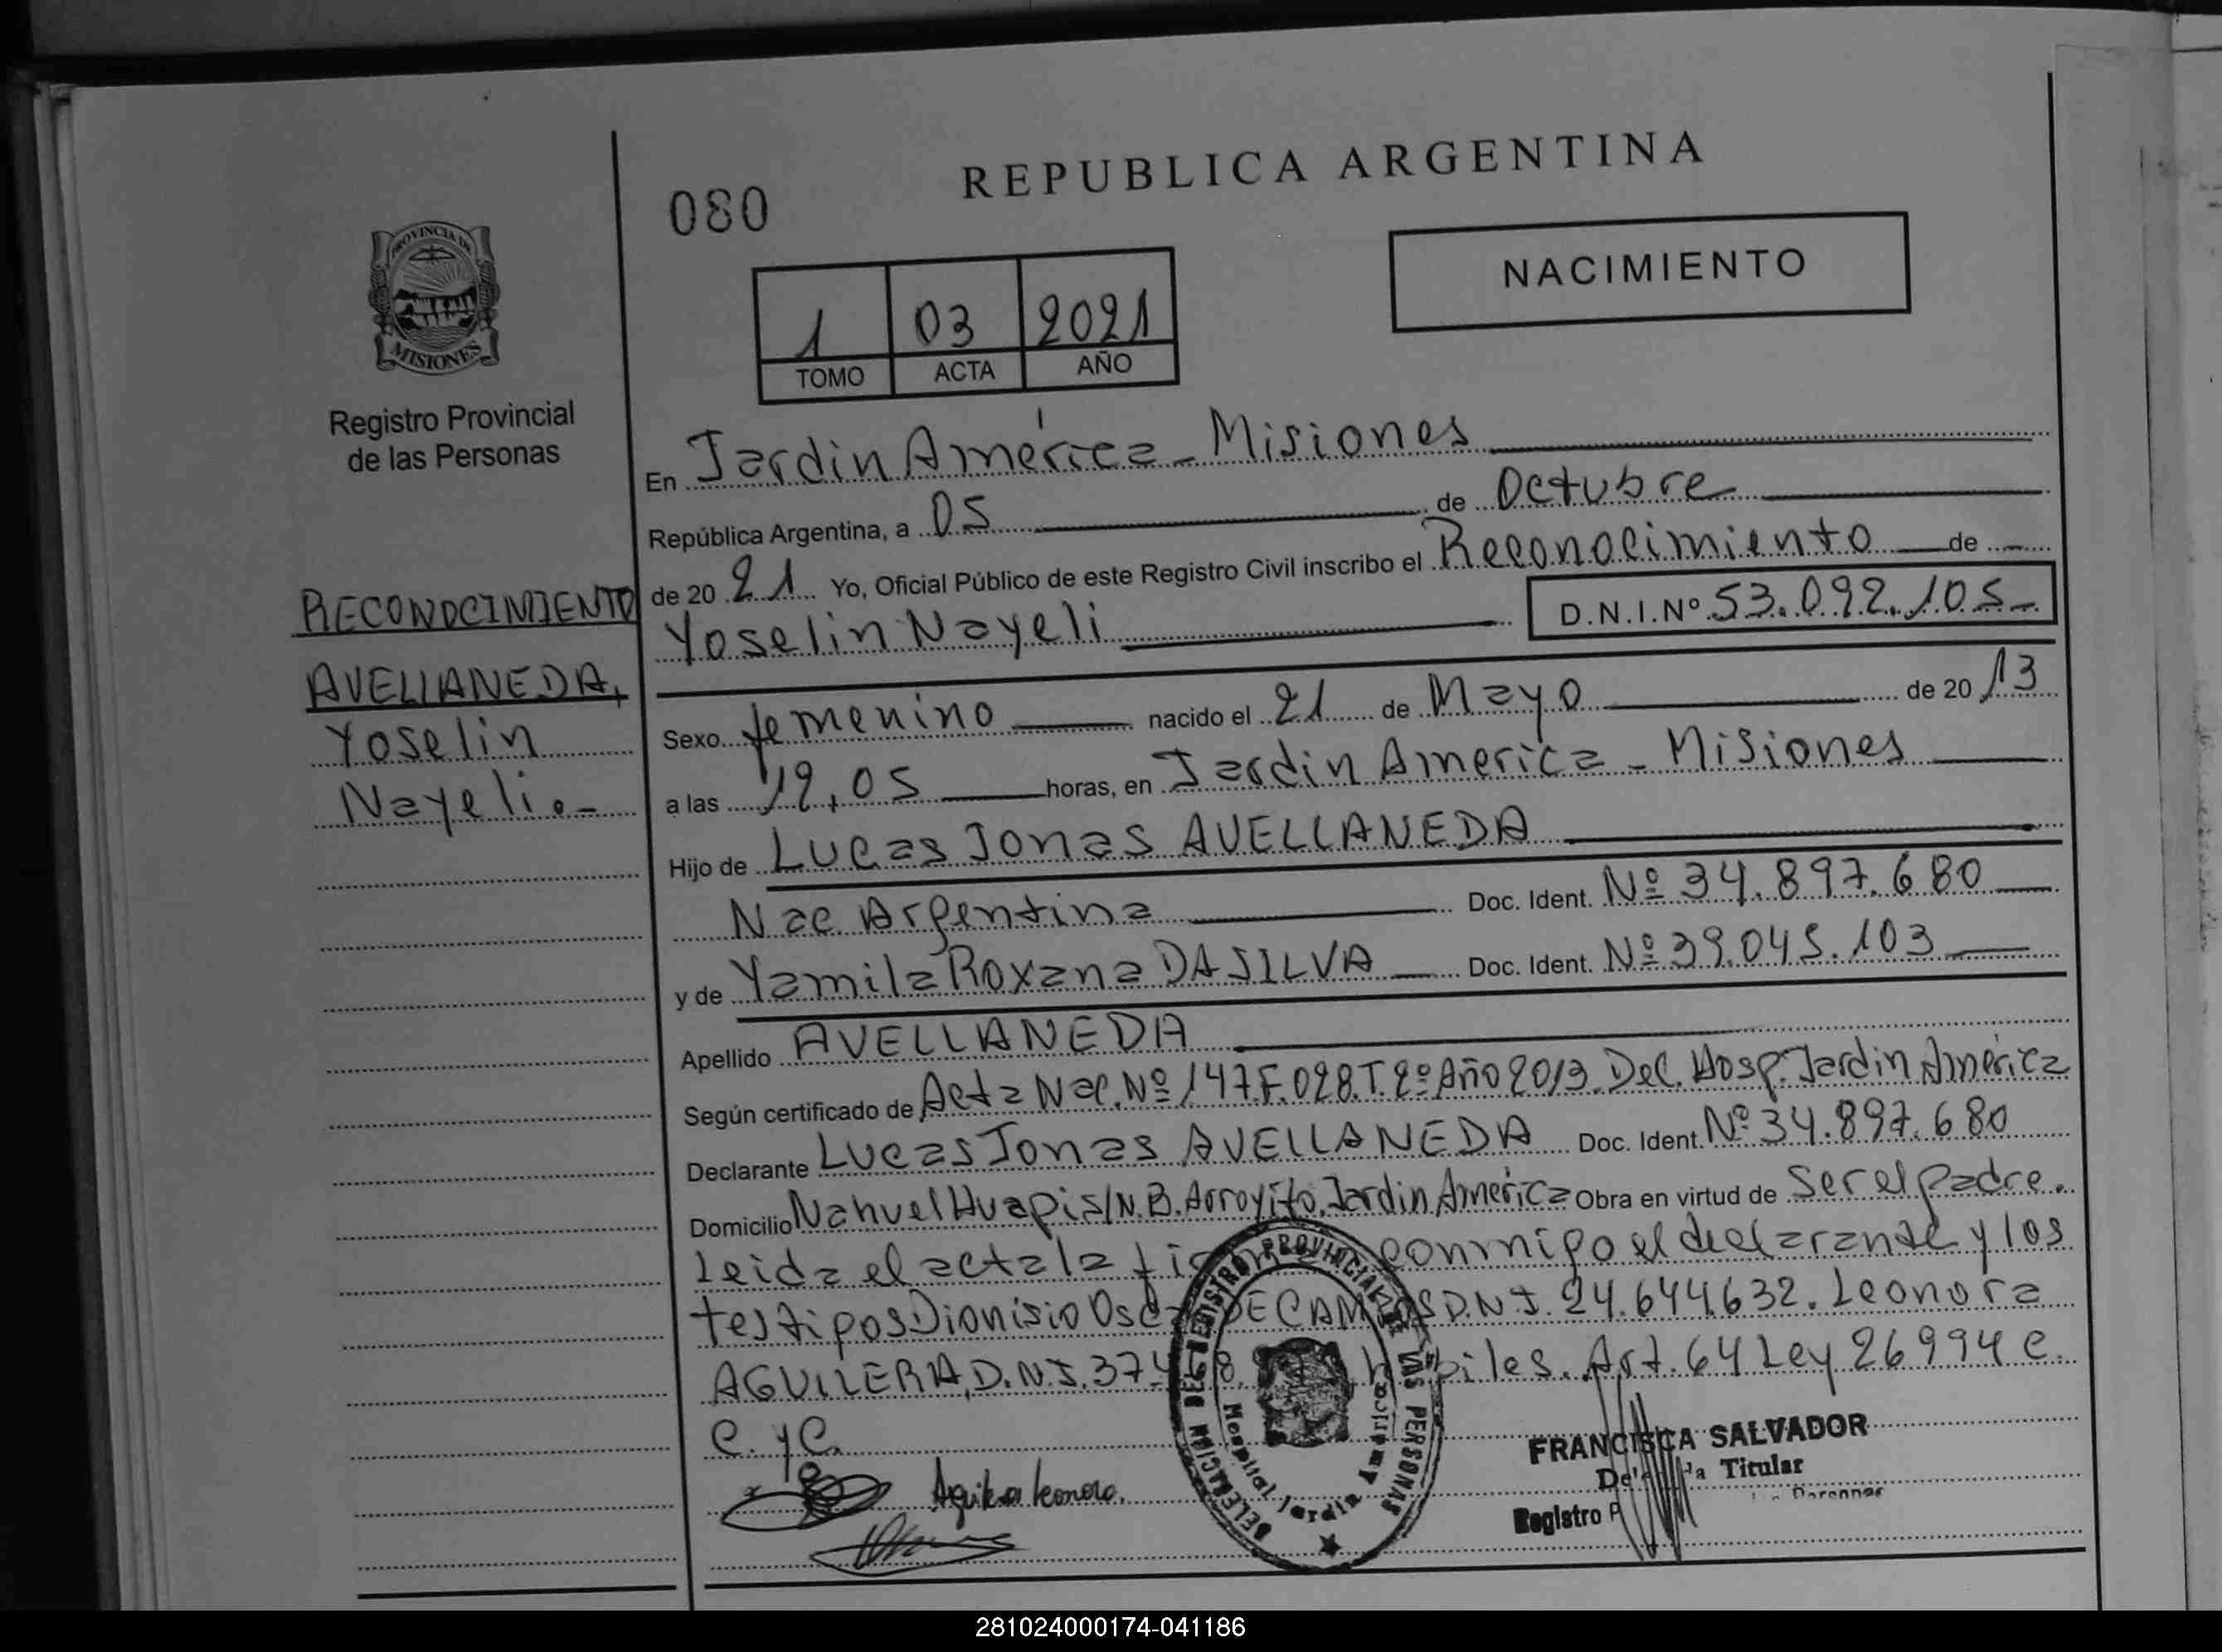 REPUBLICA ARGENTINA
080
NACIMIENTO
PROVINCIA DE
MISIONES
Registro Provincial
de las Personas
1 03 2021
TOMO ACTA AÑO
En Jardin América - Misiones
República Argentina, a 05 de Octubre
de 20 21 Yo, Oficial Público de este Registro Civil inscribo el Reconocimiento de
Yoselin Nayeli D.N.I.Nº 53.092.105-
RECONOCIMIENTO
AVELLANEDA,
Yoselin
Nayeli.-
Sexo femenino nacido el 21 de Mayo de 20 13
a las 12,05 horas, en Jardin America - Misiones
Hijo de Lucas Jonas AVELLANEDA
Nac Argentina Doc. Ident. Nº 34.897.680
y de Yamila Roxana DA SILVA Doc. Ident. Nº 39.045.103
Apellido AVELLANEDA
Según certificado de Acta Nac. Nº 147 F. 028. T. 2º Año 2013. Del. Hosp. Jardin América
Declarante Lucas Jonas AVELLANEDA Doc. Ident. Nº 34.897.680
Domicilio Nahuel Huapi s/N. B. Arroyito. Jardin América Obra en virtud de Ser el padre.
Leida el acta la conmigo el declarante y los
testigos Dionisio DE CAMPOS D.N.I. 24.644.632. Leonora
AGUILERA, D.N.I. Art. 64 Ley 26994 C.
C. y C.
Aguilera Leonora.
DELEGACION DEL REGISTRO PROVINCIAL DE LAS PERSONAS
Hospital Jardin América
FRANCISCA SALVADOR
Titular
Registro
281024000174-041186